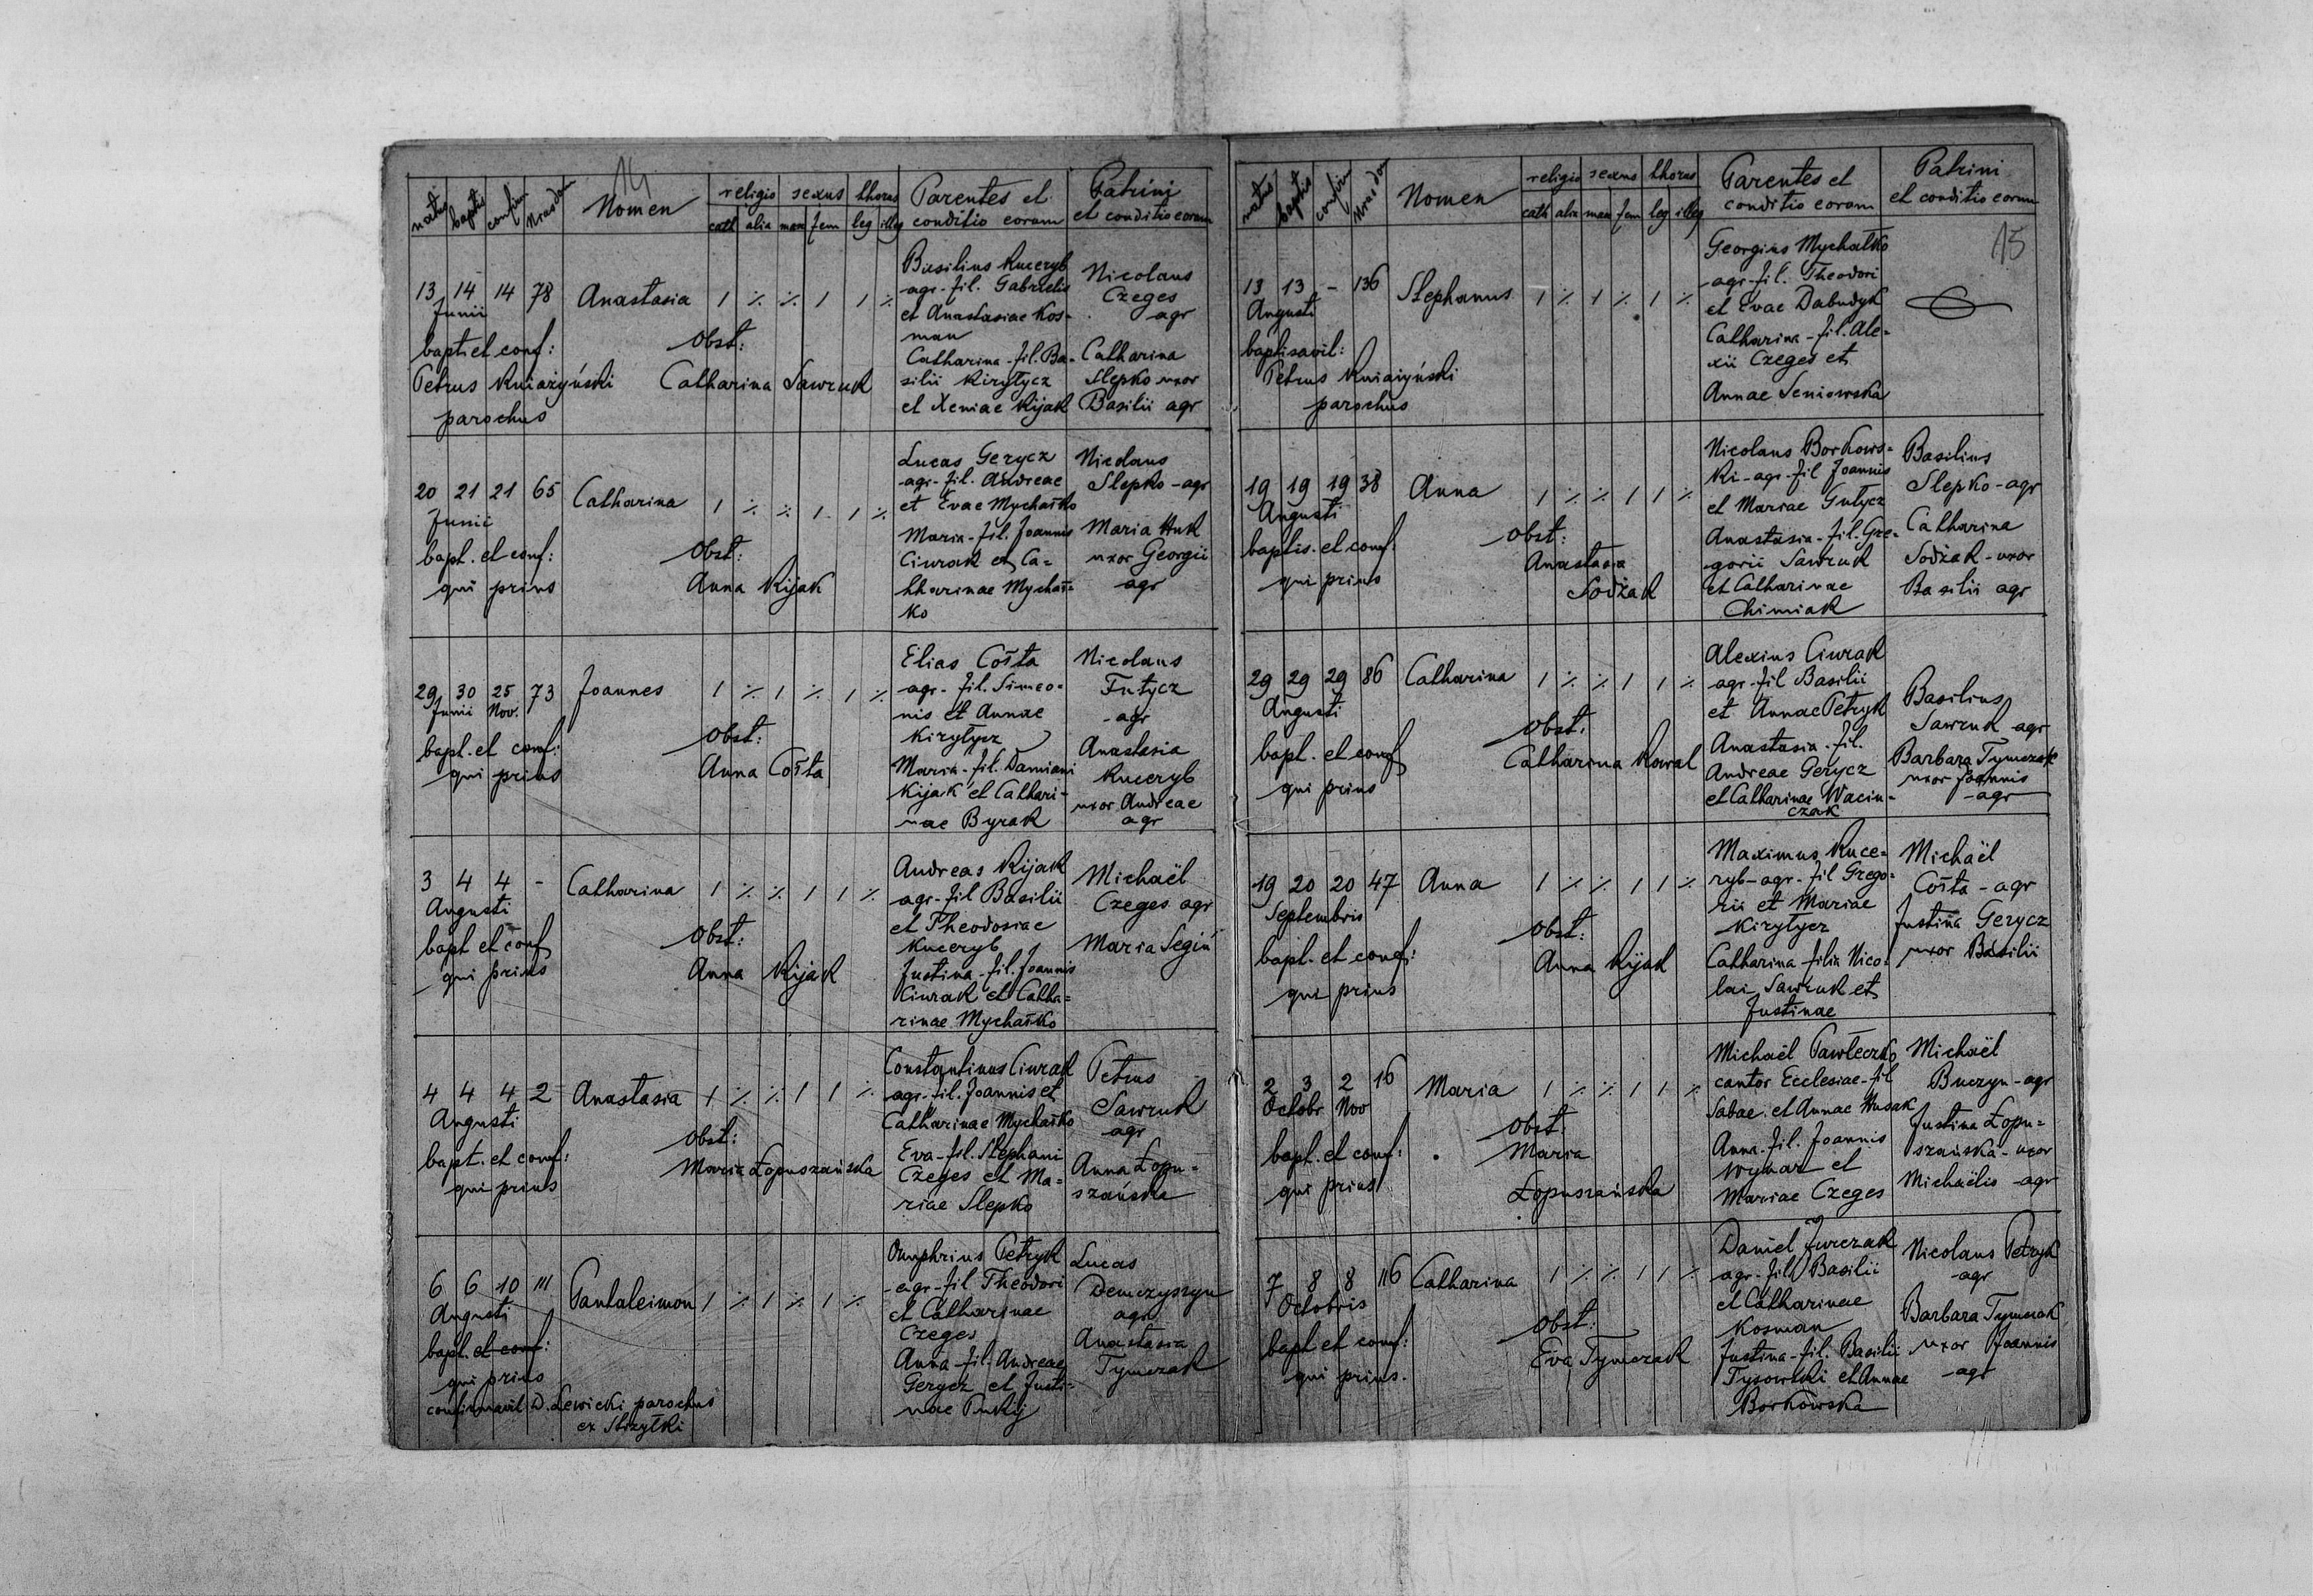 14
natus baptis confir Nrus dom Nomen religio sexus thorus Parentes et Patrini
cath alia mas fem leg illeg conditio eorum et conditio eorum
13 14 14 78 Anastasia 1 ٪ ٪ 1 1 ٪
Junii
bapti et conf:
Petrus Kniażyński
parochus
Obst:
Catharina Sawruk
Basilius Kuceryb
agr-fil. Gabrielis
et Anastasiae Kos-
man
Catharina-fil. Ba-
silii Kirytycz
et Xeniae Kijak
Nicolaus
Czeges
agr
Catharina
Slepko uxor
Basilii agr
20 21 21 65 Catharina 1 ٪ ٪ 1 1 ٪
Junii
bapt. et conf:
qui prius
Obst:
Anna Kijak
Lucas Gerycz
agr-fil. Andreae
et Evae Mychałko
Maria-fil. Joannis
Ciurak et Ca=
tharinae Mychał=
ko
Nicolaus
Slepko-agr
Maria Huk
uxor Georgii
agr
29 30 25 73 Joannes 1 ٪ 1 ٪ 1 ٪
Junii Nov.
bapt. et conf:
qui prius
Obst:
Anna Cośta
Elias Cośta
agr-fil. Simeo-
nis et Annae
Kirytycz
Maria-fil. Damiani
Kijak et Cathari-
nae Byrak
Nicolaus
Futycz
-agr
Anastasia
Kuceryb
uxor Andreae
agr
3 4 4 - Catharina 1 ٪ ٪ 1 1 ٪
Augusti
bapt et conf
qui prius
Obst:
Anna Kijak
Andreas Kijak
agr-fil Basilii
et Theodosiae
Kuceryb
Justina-fil. Joannis
Ciurak et Catha=
rinae Mychałko
Michaël
Czeges agr
Maria Segiń
4 4 4 2 Anastasia 1 ٪ ٪ 1 1 ٪
Augusti
bapt. et conf:
qui prius
Obst:
Maria Łopuszańska
Constantinus Ciurak
agr-fil. Joannis et
Catharinae Mychałko
Eva-fil. Stephani
Czeges et Ma=
riae Slepko
Petrus
Sawruk
agr
Anna Łopu=
szańska
6 6 10 111 Pantaleimon 1 ٪ 1 ٪ 1 ٪
Augusti
bapt. et conf:
qui prius
confirmavit D. Lewicki parochus
ex Strzyłki
Onuphrius Petryk
agr-fil Theodori
et Catharinae
Czeges
Anna-fil. Andreae
Gerycz et Justi=
nae Pukij
Lucas
Demczyszyn
agr
Anastasia
Tymczak
15
natus baptis confir Nrus dom Nomen religio sexus thorus Parentes et Patrini
cath alia mas fem leg illeg conditio eorum et conditio eorum
13 13 - 136 Stephanus 1 ٪ 1 ٪ 1 ٪
Augusti
baptisavit:
Petrus Kniażyński
parochus
Georgius Mychałko
agr-fil. Theodori
et Evae Dabudyk
Catharina-fil. Ale-
xii Czeges et
Annae Seniowska
19 19 19 38 Anna 1 ٪ ٪ 1 1 ٪
Augusti
baptis. et conf:
qui prius
Obst:
Anastasia
Sodżak
Nicolaus Borkows=
ki-agr-fil Joannis
et Mariae Gutycz
Anastasia-fil. Gre-
gorii Sawruk
et Catharinae
Chimiak
Basilius
Slepko-agr
Catharina
Sodżak-uxor
Basilii agr
29 29 29 86 Catharina 1 ٪ ٪ 1 1 ٪
Augusti
bapt. et conf
qui prius
Obst:
Catharina Kowal
Alexius Ciurak
agr-fil Basilii
et Annae Petryk
Anastasia-fil.
Andreae Gerycz
et Catharinae Wacin-
czak
Basilius
Sawruk agr
Barbara Tymczak
uxor Joannis
-agr
19 20 20 47 Anna 1 ٪ ٪ 1 1 ٪
Septembris
bapt. et conf:
qui prius
Obst:
Anna Kijak
Maximus Kuce=
ryb-agr-fil Grego-
rii et Mariae
Kirytycz
Catharina filia Nico-
lai Sawruk et
Justinae
Michaël
Cośta-agr
Justina Gerycz
uxor Basilii
2 3 2 16 Maria 1 ٪ ٪ 1 1 ٪
Octobr Nov
bapt. et conf:
qui prius
Obst:
Maria
Łopuszańska
Michaël Pawłeczko
cantor Ecclesiae-fil
Sabae et Annae Husak
Anna-fil. Joannis
Wynar et
Mariae Czeges
Michaël
Buczyn-agr
Justina Łopu=
szańska-uxor
Michaëlis-agr
7 8 8 116 Catharina 1 ٪ ٪ 1 1 ٪
Octobris
bapt et conf:
qui prius.
Obst:
Eva Tymczak
Daniel Jurczak
agr-fil Basilii
et Catharinae
Kosman
Justina-fil. Basilii
Tysowski et Annae
Borkowska
Nicolaus Petryk
-agr
Barbara Tymczak
uxor Joannis
-agr